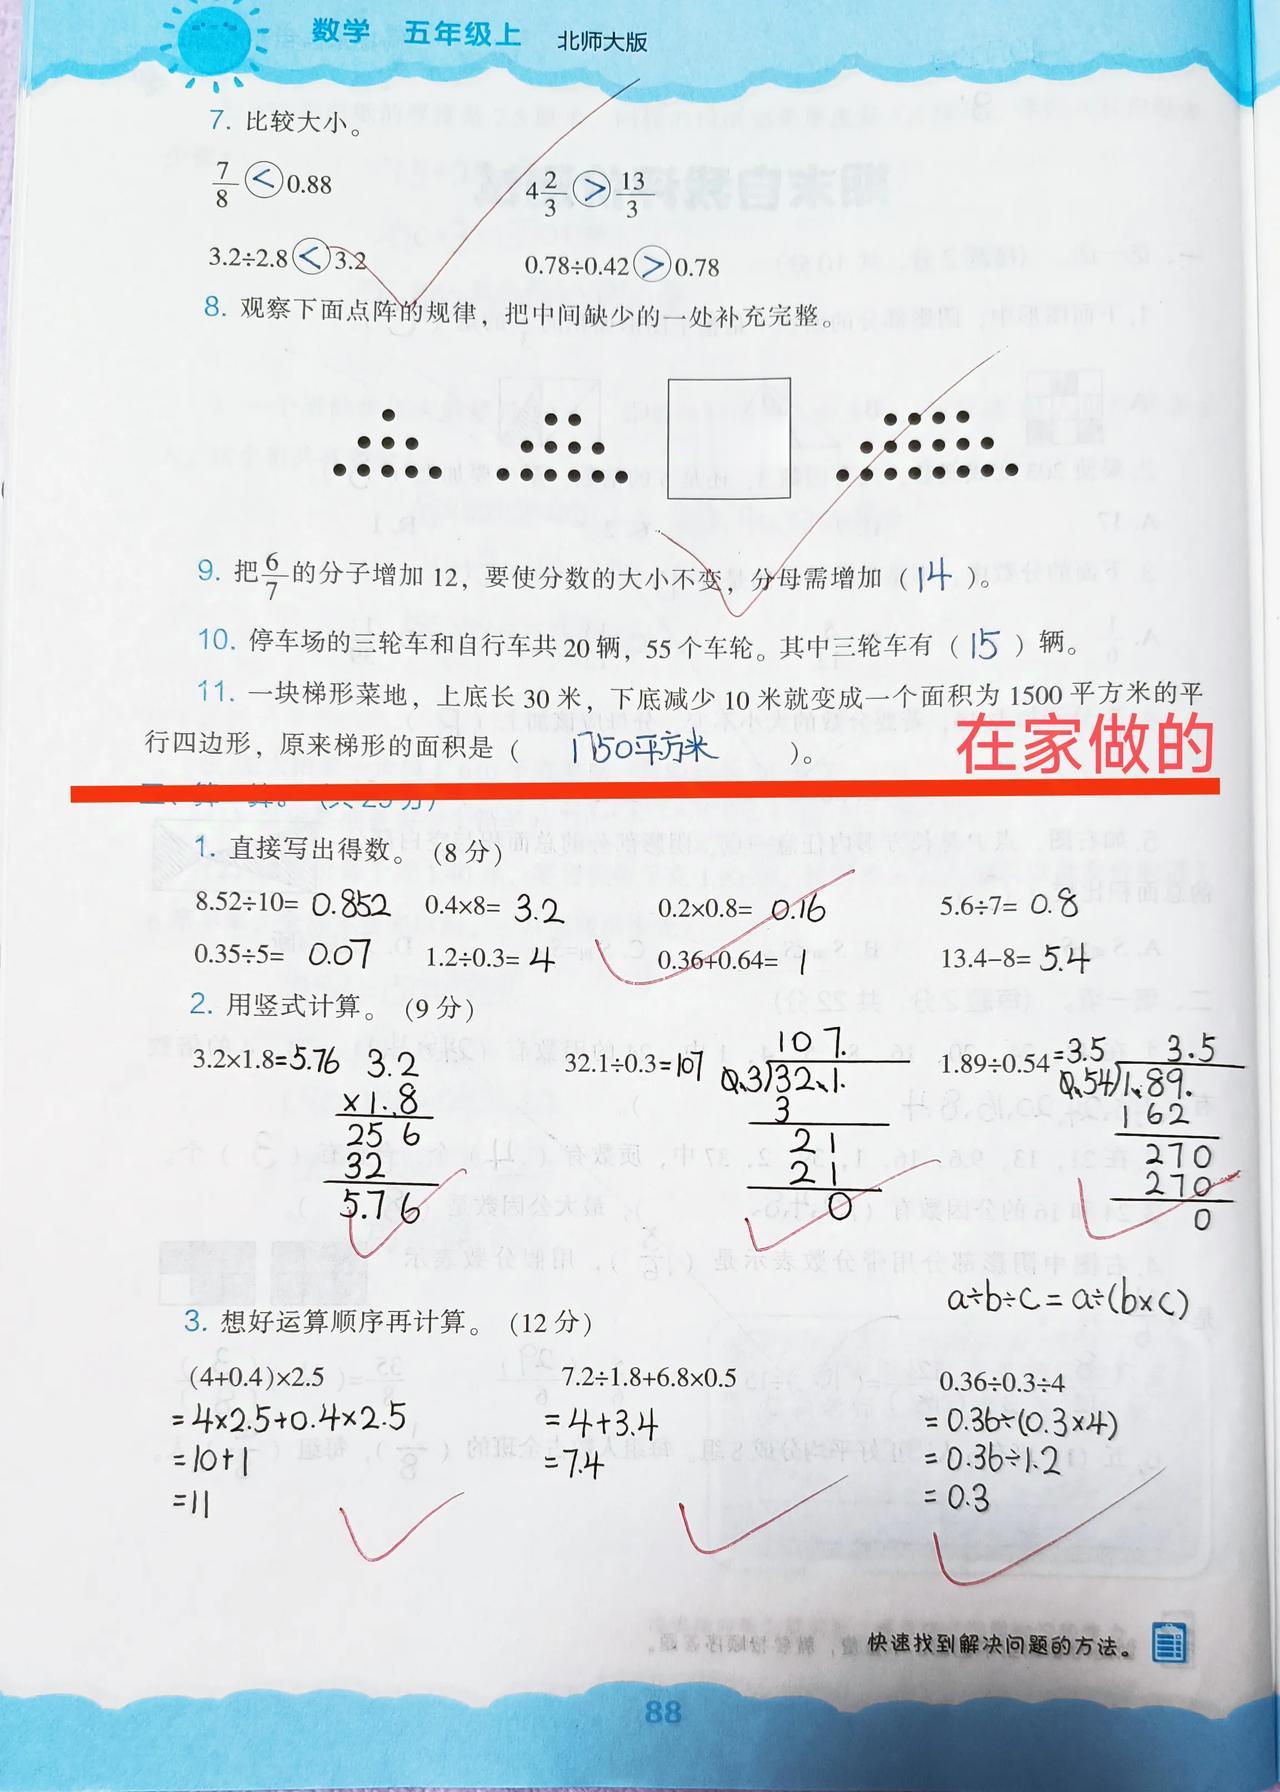 数学 五年级上 北师大版
7. 比较大小。
7/8 < 0.88 4 2/3 > 13/3
3.2÷2.8 < 3.2 0.78÷0.42 > 0.78
8. 观察下面点阵的规律，把中间缺少的一处补充完整。
9. 把6/7的分子增加 12，要使分数的大小不变，分母需增加（14）。
10. 停车场的三轮车和自行车共 20 辆，55 个车轮。其中三轮车有（15）辆。
11. 一块梯形菜地，上底长 30 米，下底减少 10 米就变成一个面积为 1500 平方米的平
行四边形，原来梯形的面积是（1750平方米）。
在家做的
1. 直接写出得数。（8 分）
8.52÷10= 0.852 0.4×8= 3.2 0.2×0.8= 0.16 5.6÷7= 0.8
0.35÷5= 0.07 1.2÷0.3= 4 0.36+0.64= 1 13.4−8= 5.4
2. 用竖式计算。（9 分）
3.2×1.8=5.76 32.1÷0.3=107 1.89÷0.54=3.5
3.2 107. 3.5
×1.8 0.3)32.1. 0.54)1.89.
256 3 162
32 21 270
5.76 21 270
0 0
a÷b÷c=a÷(b×c)
3. 想好运算顺序再计算。（12 分）
(4+0.4)×2.5 7.2÷1.8+6.8×0.5 0.36÷0.3÷4
=4×2.5+0.4×2.5 =4+3.4 =0.36÷(0.3×4)
=10+1 =7.4 =0.36÷1.2
=11 =0.3
快速找到解决问题的方法。
88